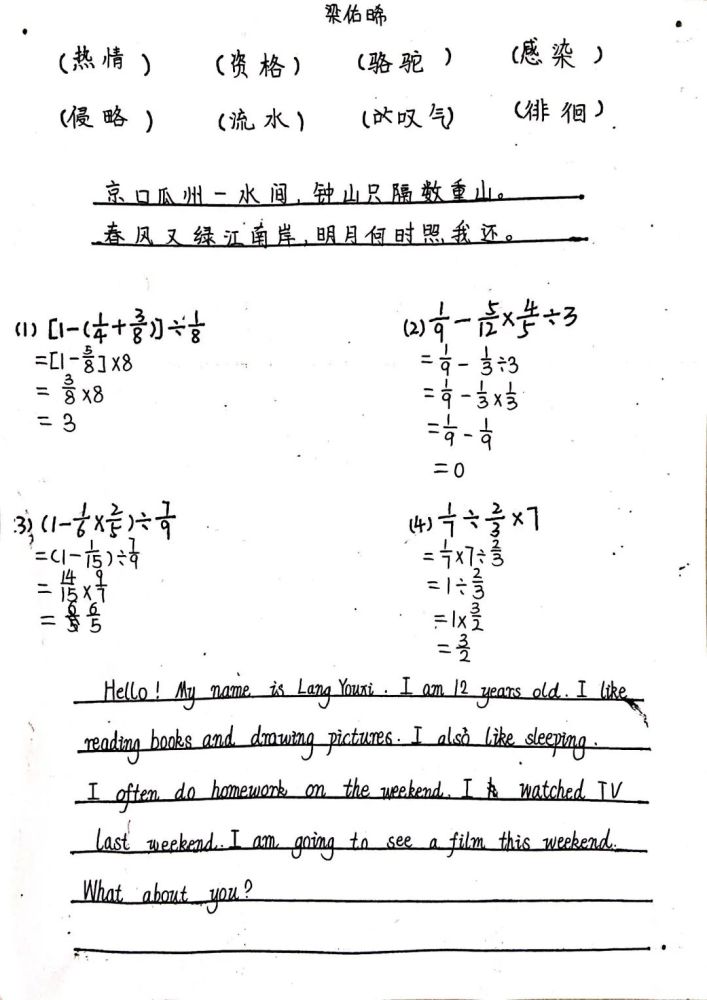 梁佑晞
(热情) (资格) (骆驼) (感染)
(侵略) (流水) (叹气) (徘徊)
京口瓜州一水间,钟山只隔数重山。
春风又绿江南岸,明月何时照我还。
(1) [1-(1/4+3/8)]÷1/8
=[1-5/8]×8
=3/8×8
=3
(2) 1/9-5/12×4/5÷3
=1/9-1/3÷3
=1/9-1/3×1/3
=1/9-1/9
=0
3) (1-1/6×2/5)÷7/9
=(1-1/15)÷7/9
=14/15×9/7
=6/5
(4) 1/7÷2/3×7
=1/7×7÷2/3
=1÷2/3
=1×3/2
=3/2
Hello! My name is Lang Youxi. I am 12 years old. I like
reading books and drawing pictures. I also like sleeping.
I often do homework on the weekend. I watched TV
last weekend. I am going to see a film this weekend.
What about you?